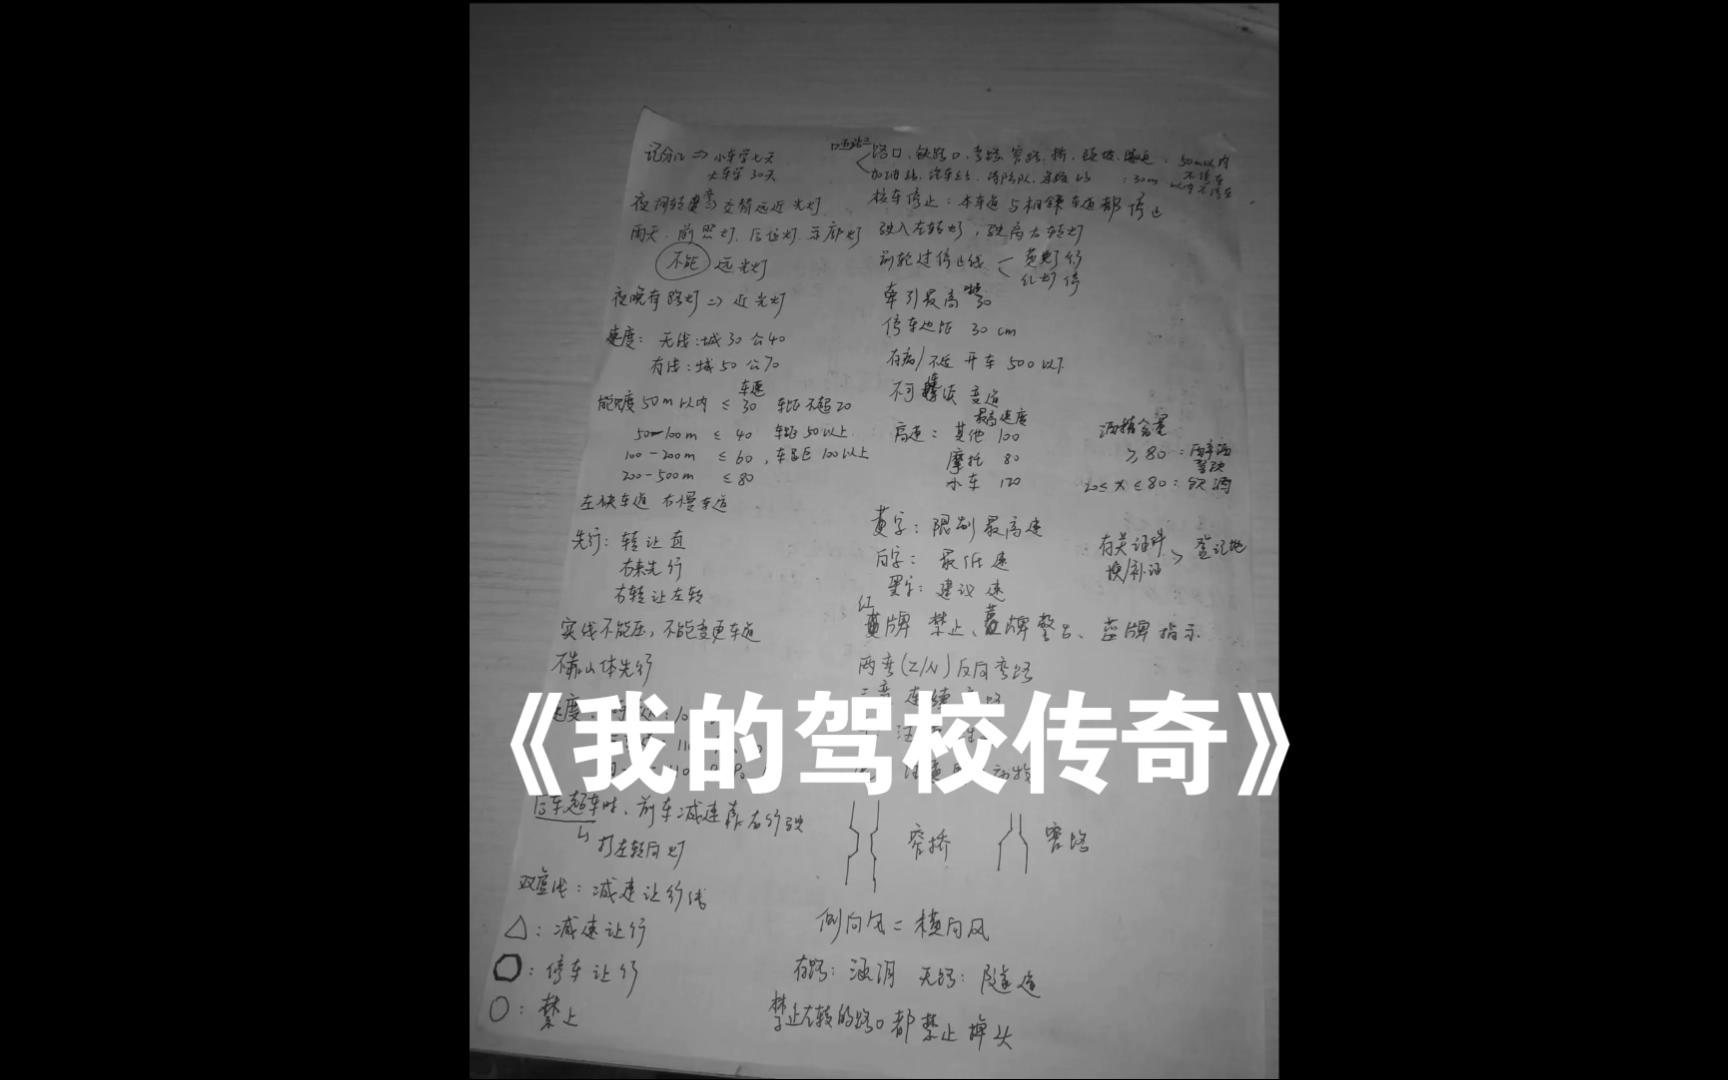 记分12 ⇒ 小车学七天
大车学 30天
夜间转弯 ⇒ 交替远近光灯
雨天. 前照灯. 后位灯. 示廓灯
不能 远光灯
夜晚有路灯 ⇒ 近光灯
速度: 无线: 城30 公40
有线: 城50 公70
车速
能见度 50m以内 ≤ 30 车距不超20
50-100m ≤ 40 车距50以上
100-200m ≤ 60, 车距100以上
200-500m ≤ 80
左快车道 右慢车道
先行: 转让直
右来先行
右转让左转
实线不能压, 不能变更车道
不靠山体先行
后车超车时, 前车减速靠右行驶
↳ 打左转向灯
双虚线: 减速让行线
△: 减速让行
: 停车让行
○: 禁止
路口. 铁路口. 弯路. 窄路. 桥. 陡坡. 隧道: 50m以内不停车
加油站. 汽车站. 消防队. : 30m以内不停车
校车停止: 本车道与相邻车道都停止
驶入左转灯, 驶离右转灯
前轮过停止线 < 黄灯行
红灯停
牵引最高 30
停车边距 30 cm
不可 变道
最高速度
高速: 其他 100
摩托 80
小车 120
酒精含量
≥ 80: 醉酒驾驶
20 ≤ x ≤ 80: 饮酒
黄字: 限制最高速
白字: 最低速
黑字: 建议速
有关证件
换/补证 > 登记地
红牌 禁止、黄牌警告、蓝牌指示
两弯(Z/N)反向弯路
《我的驾校传奇》
窄桥 窄路
侧向风 = 横向风
有路: 涵洞 无路: 隧道
禁止左转的路口都禁止掉头